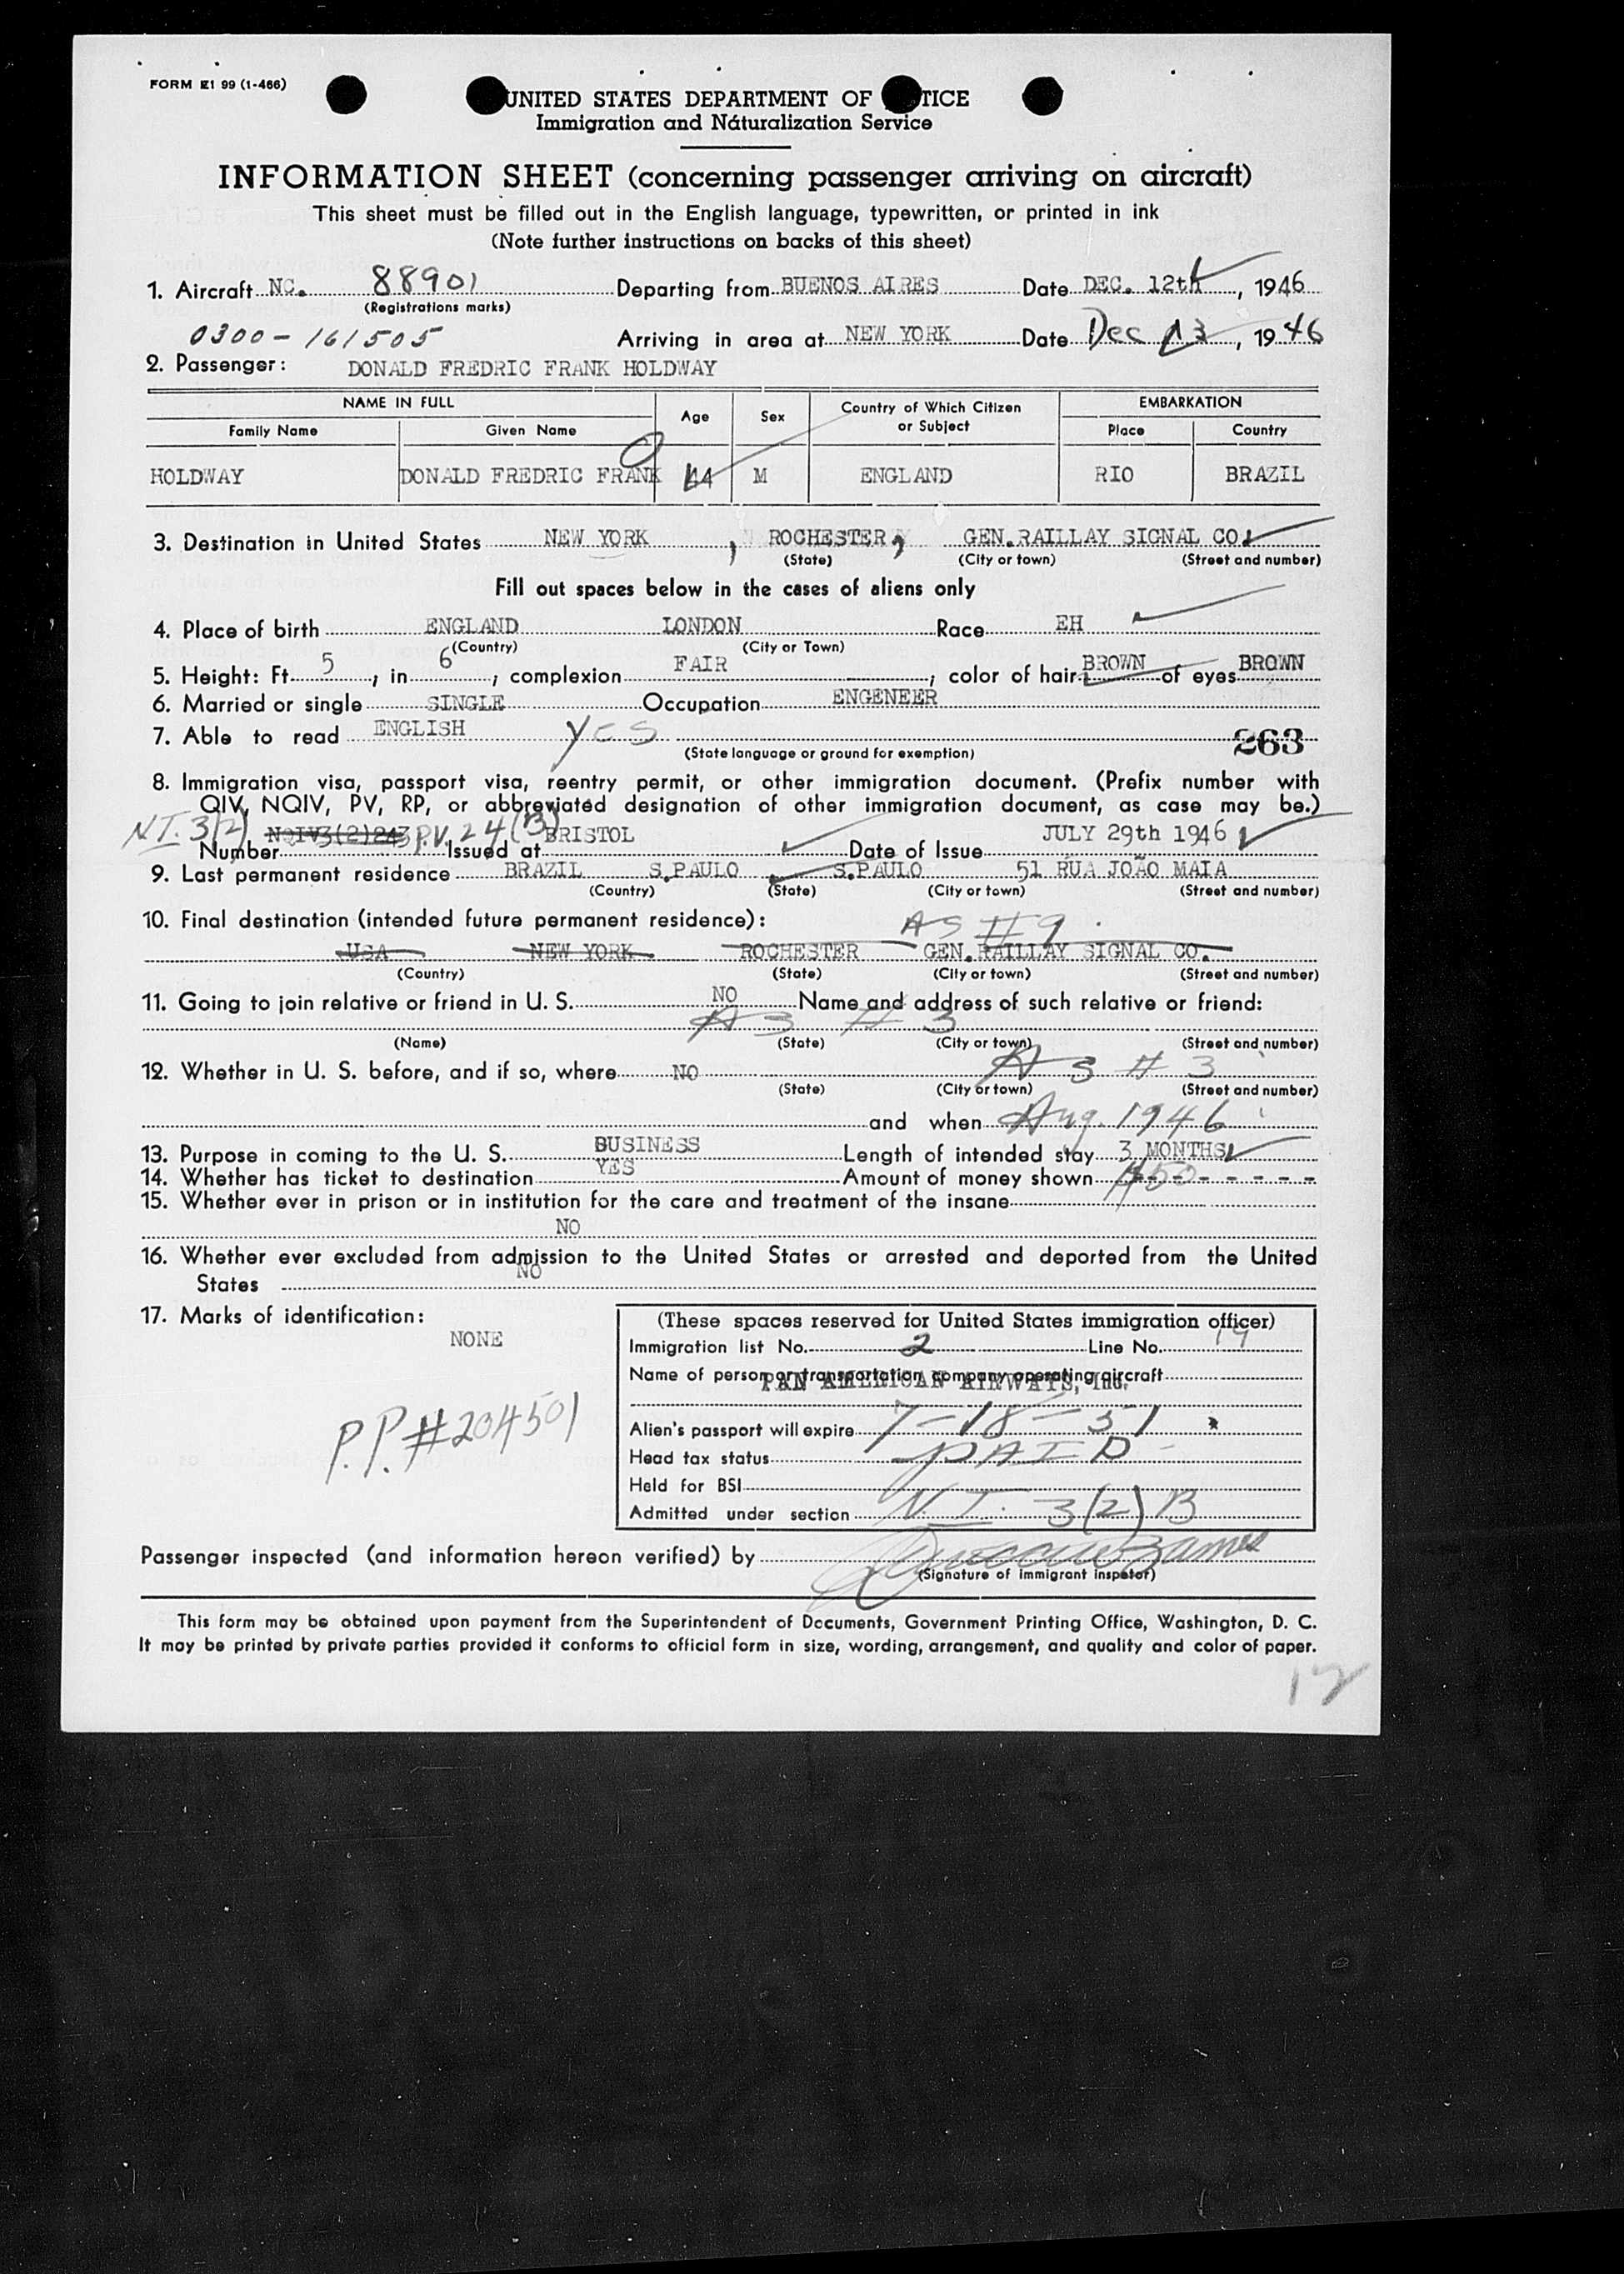 FORM I 99 (1-466)
UNITED STATES DEPARTMENT OF TICE
Immigration and Naturalization Service
INFORMATION SHEET (concerning passenger arriving on aircraft)
This sheet must be filled out in the English language, typewritten, or printed in ink
(Note further instructions on backs of this sheet)
1. Aircraft NC. 88901 Departing from BUENOS AIRES Date DEC. 12th, 1946
(Registrations marks)
0300-161505 Arriving in area at NEW YORK Date Dec 13, 1946
2. Passenger: DONALD FREDRIC FRANK HOLDWAY
NAME IN FULL Age Sex Country of Which Citizen or Subject EMBARKATION
Family Name Given Name Place Country
HOLDWAY DONALD FREDRIC FRANK 44 M ENGLAND RIO BRAZIL
3. Destination in United States NEW YORK, ROCHESTER, GEN.RAILLAY SIGNAL CO.
(State) (City or town) (Street and number)
Fill out spaces below in the cases of aliens only
4. Place of birth ENGLAND LONDON Race EH
(Country) (City or Town)
5. Height: Ft. 5, in 6, complexion FAIR, color of hair BROWN of eyes BROWN
6. Married or single SINGLE Occupation ENGENEER
7. Able to read ENGLISH yes
(State language or ground for exemption) 263
8. Immigration visa, passport visa, reentry permit, or other immigration document. (Prefix number with
QIV, NQIV, PV, RP, or abbreviated designation of other immigration document, as case may be.)
N.I. 3(2) NQIV3(2)243 P.V. 24 (B) BRISTOL JULY 29th 1946
Number Issued at Date of Issue
9. Last permanent residence BRAZIL S.PAULO S.PAULO 51 RUA JOÃO MAIA
(Country) (State) (City or town) (Street and number)
10. Final destination (intended future permanent residence): AS #9
USA NEW YORK ROCHESTER GEN.RAILLAY SIGNAL CO.
(Country) (State) (City or town) (Street and number)
11. Going to join relative or friend in U. S. NO Name and address of such relative or friend:
AS # 3
(Name) (State) (City or town) (Street and number)
12. Whether in U. S. before, and if so, where NO AS # 3
(State) (City or town) (Street and number)
and when Aug. 1946
13. Purpose in coming to the U. S. BUSINESS Length of intended stay 3 MONTHS
14. Whether has ticket to destination YES Amount of money shown $50 - - - - - -
15. Whether ever in prison or in institution for the care and treatment of the insane
NO
16. Whether ever excluded from admission to the United States or arrested and deported from the United
States NO
17. Marks of identification:
NONE
P.P.#204501
(These spaces reserved for United States immigration officer)
Immigration list No. 2 Line No. 19
Name of person or transportation company operating aircraft
PAN AMERICAN AIRWAYS, Inc.
Alien's passport will expire 7-18-51
Head tax status PAID
Held for BSI
Admitted under section N.I. 3(2) B
Passenger inspected (and information hereon verified) by
(Signature of immigrant inspetor)
This form may be obtained upon payment from the Superintendent of Documents, Government Printing Office, Washington, D. C.
It may be printed by private parties provided it conforms to official form in size, wording, arrangement, and quality and color of paper.
12